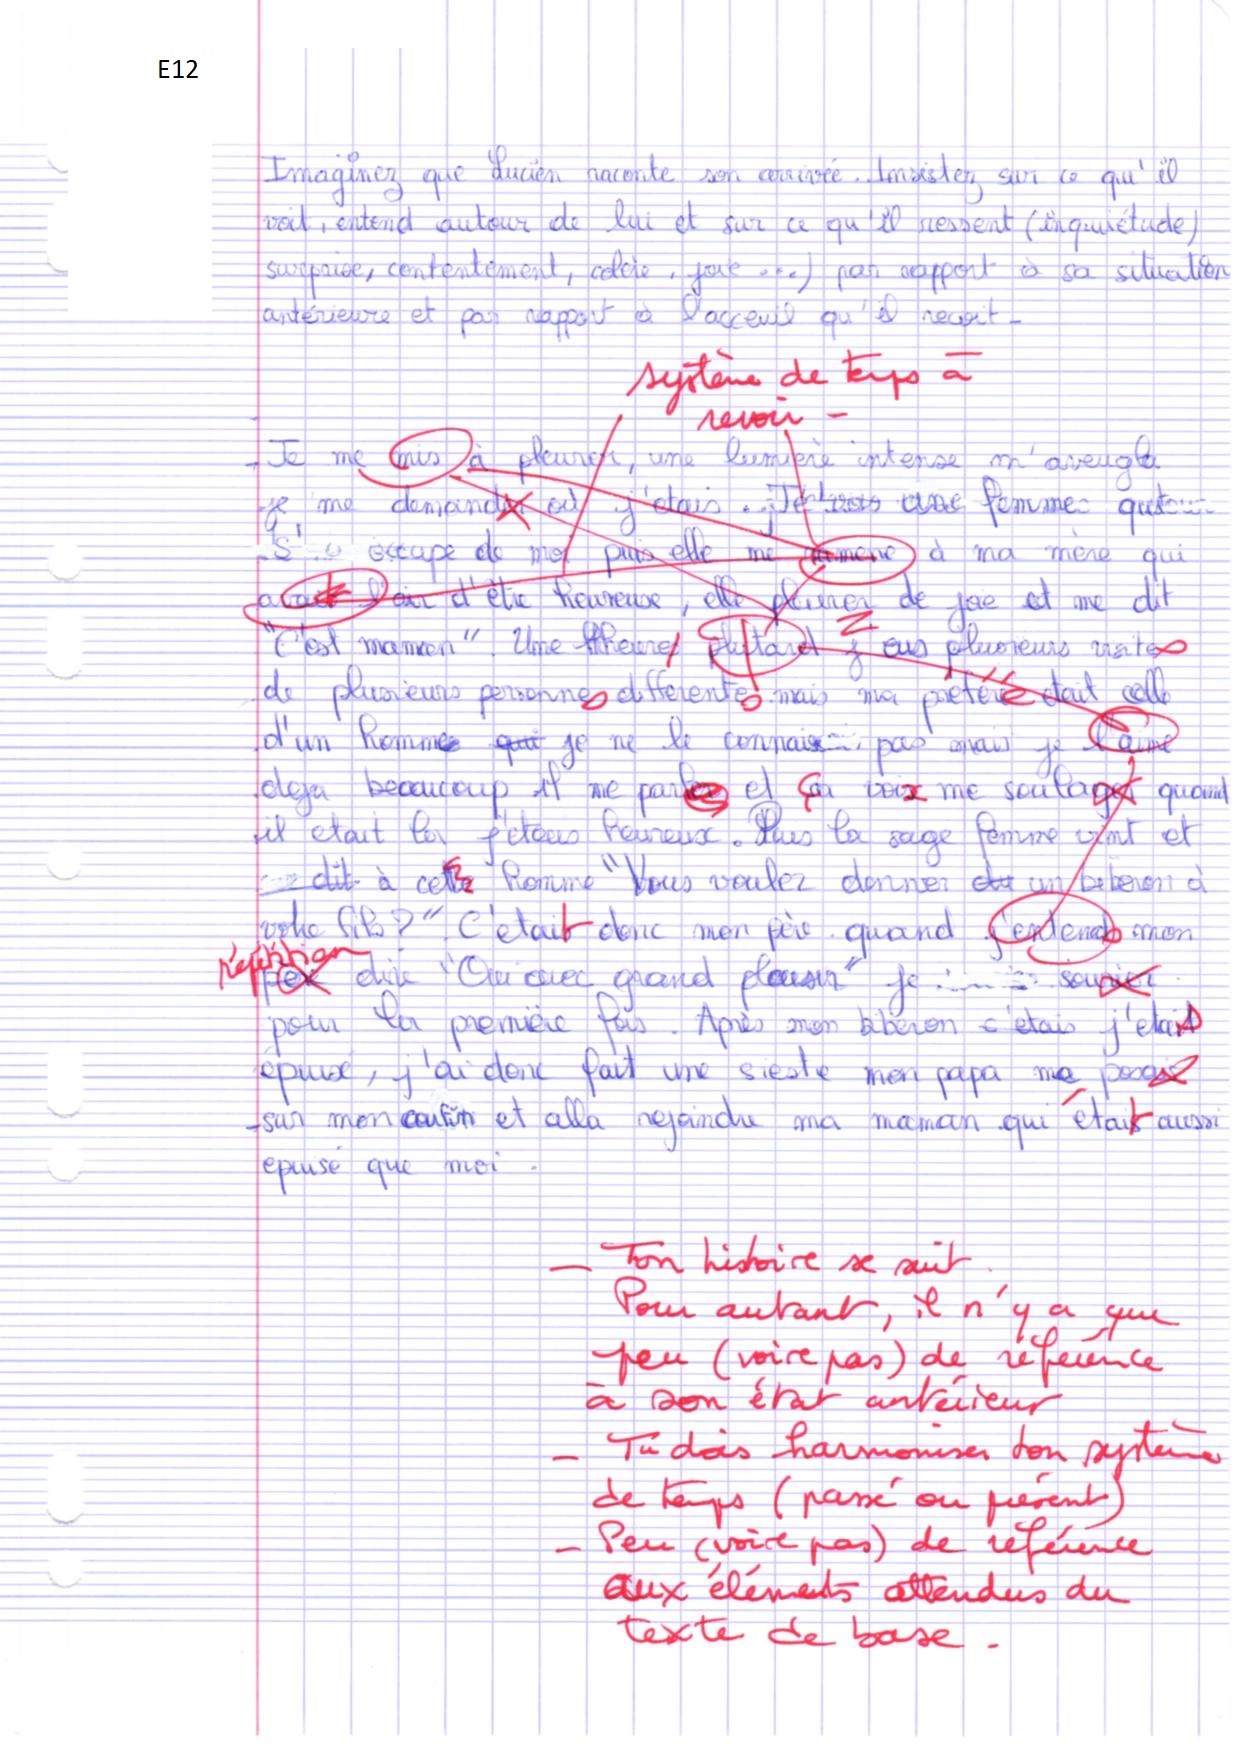 E12
Imaginez que Lucien raconte son arrivée. Insistez sur ce qu'il
voit, entend autour de lui et sur ce qu'il ressent (inquiétude)
surprise, contentement, colère, joie ...) par rapport à sa situation
antérieure et par rapport à l'acceuil qu'il recoit -
système de temps à
revoir -
Je me mis à pleurer, une lumière intense m'aveugla
je me demand où j'étais. Je une femme
S' occupe de moi puis elle me ramène à ma mère qui
avait l'air d'être heureuse, elle pleurer de joie et me dit
"C'est maman". Une heure plutard j' eus plusieurs visites
de plusieurs personnes differentes mais ma préféré était celle
d'un homme qui je ne le connais pas mais je l'aime
deja beaucoup il me parler et ça voix me soulaget quand
il etait la j'étais heureux. Puis la sage femme vint et
dit à cette homme "Vous voulez donner un biberon à
votre fils ?" C'était donc mon père quand j'entends mon
répétition
père dire "Oui avec grand plaisir" je sourier
pour la première fois. Après mon biberon c'etais j'étais
épuisé, j'ai donc fait une sieste mon papa me posa
sur mon coufin et alla rejoindre ma maman qui était aussi
epuisé que moi.
- Ton histoire se suit.
Pour autant, il n'y a que
peu (voire pas) de référence
à son état antérieur
- Tu dois harmoniser ton système
de temps (passé ou présent)
- Peu (voire pas) de référence
aux éléments attendus du
texte de base.